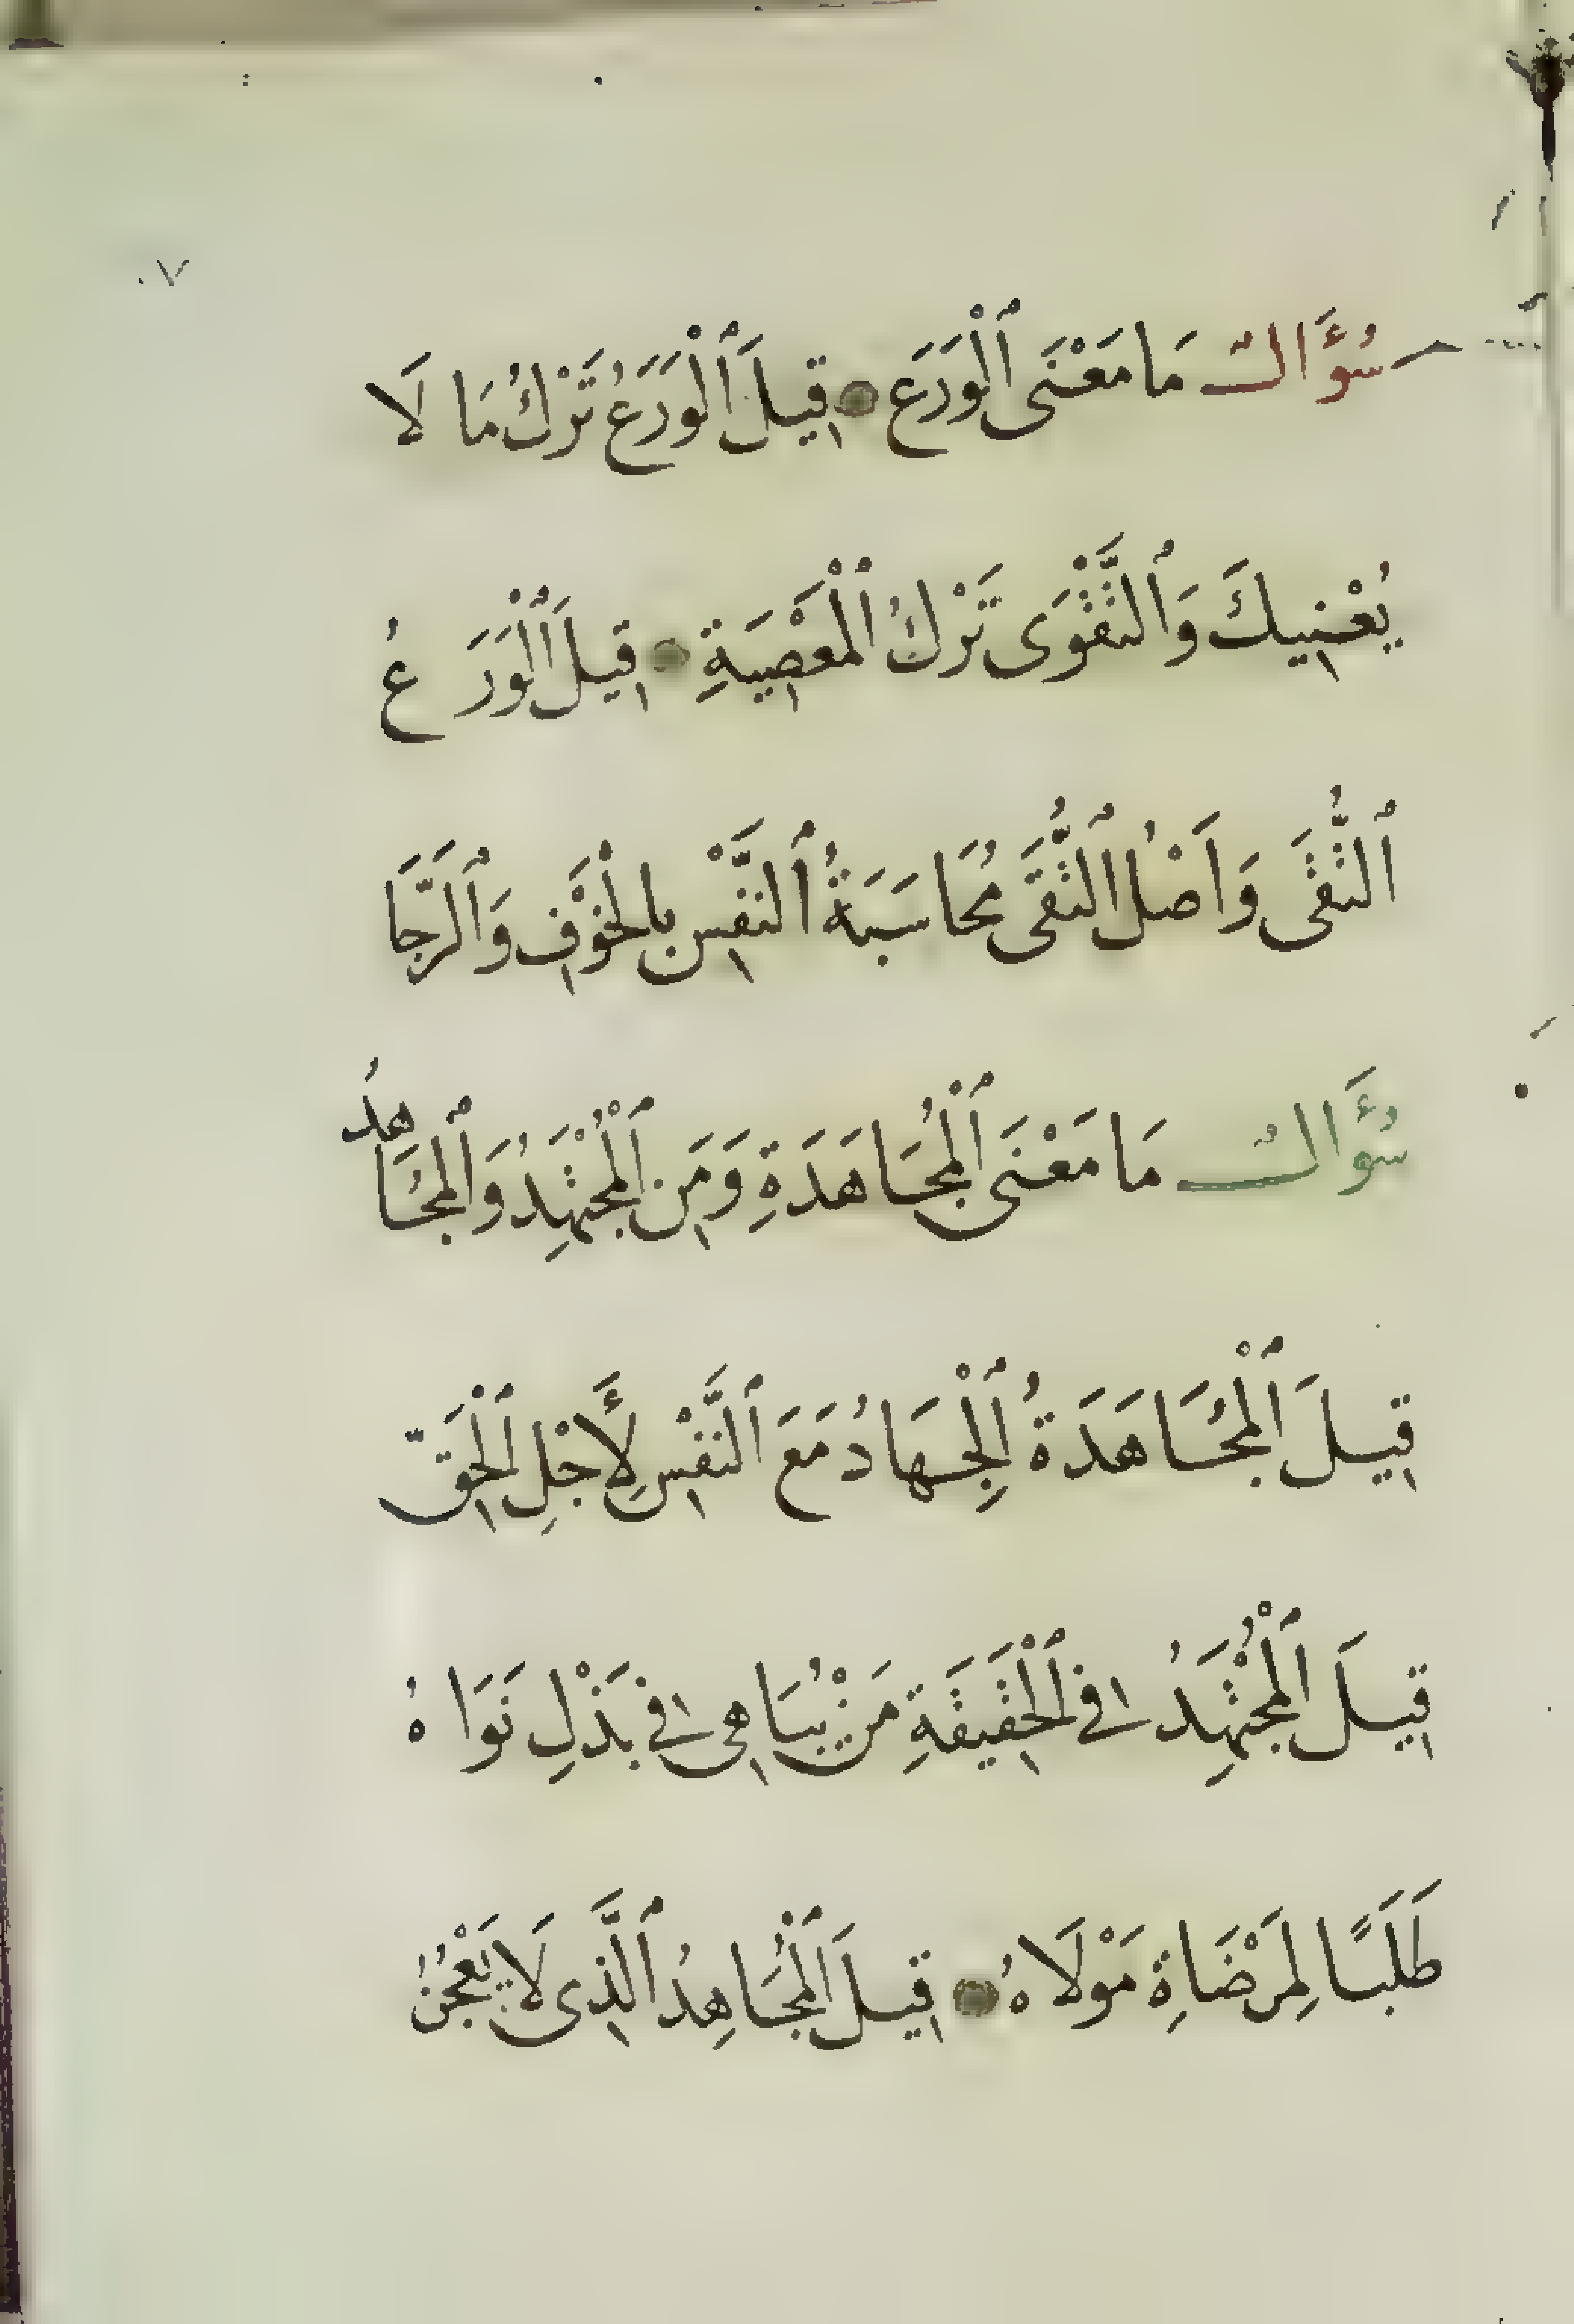 ٧٠
سُؤَالٌ مَا مَعْنَى ٱلْوَرَع قِيلَ ٱلْوَرَعُ تَرْكُ مَا لَا
يُعْنِيكَ وَٱلتَّقْوَى تَرْكُ ٱلْمَعْصِيَةِ قِيلَ ٱلْوَرَعُ
ٱلتُّقَى وَاَصْلُ ٱلتُّقَى مُحَاسَبَةُ ٱلنَّفْسِ بِالْخَوْفِ وَٱلرَّجَا
سُؤَالٌ مَا مَعْنَى ٱلْمُجَاهَدَةِ وَمَنِ ٱلْمُجْتَهِدُ وَٱلْمُجَاهِدُ
قِيلَ ٱلْمُجَاهَدَةُ ٱلْجِهَادُ مَعَ ٱلنَّفْسِ لِأَجْلِ ٱلْحَقِّ
قِيلَ ٱلْمُجْتَهِدُ فِي ٱلْحَقِيقَةِ مَنْ يُبَاهِى فِي بَذْلِ نَوَاهُ
طَلَبًا لِمَرْضَاةِ مَوْلَاهُ قِيلَ ٱلْمُجَاهِدُ ٱلَّذِى لَا